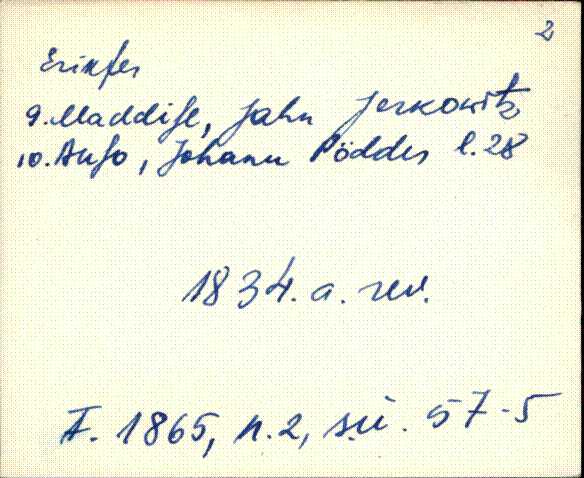 2
Erinfer
9. Maddise, Jahn Jerkowitz
10. Anso, Johann Pödder l. 28
1834. a. rev.
F. 1865, n. 2, s.ü. 57-5